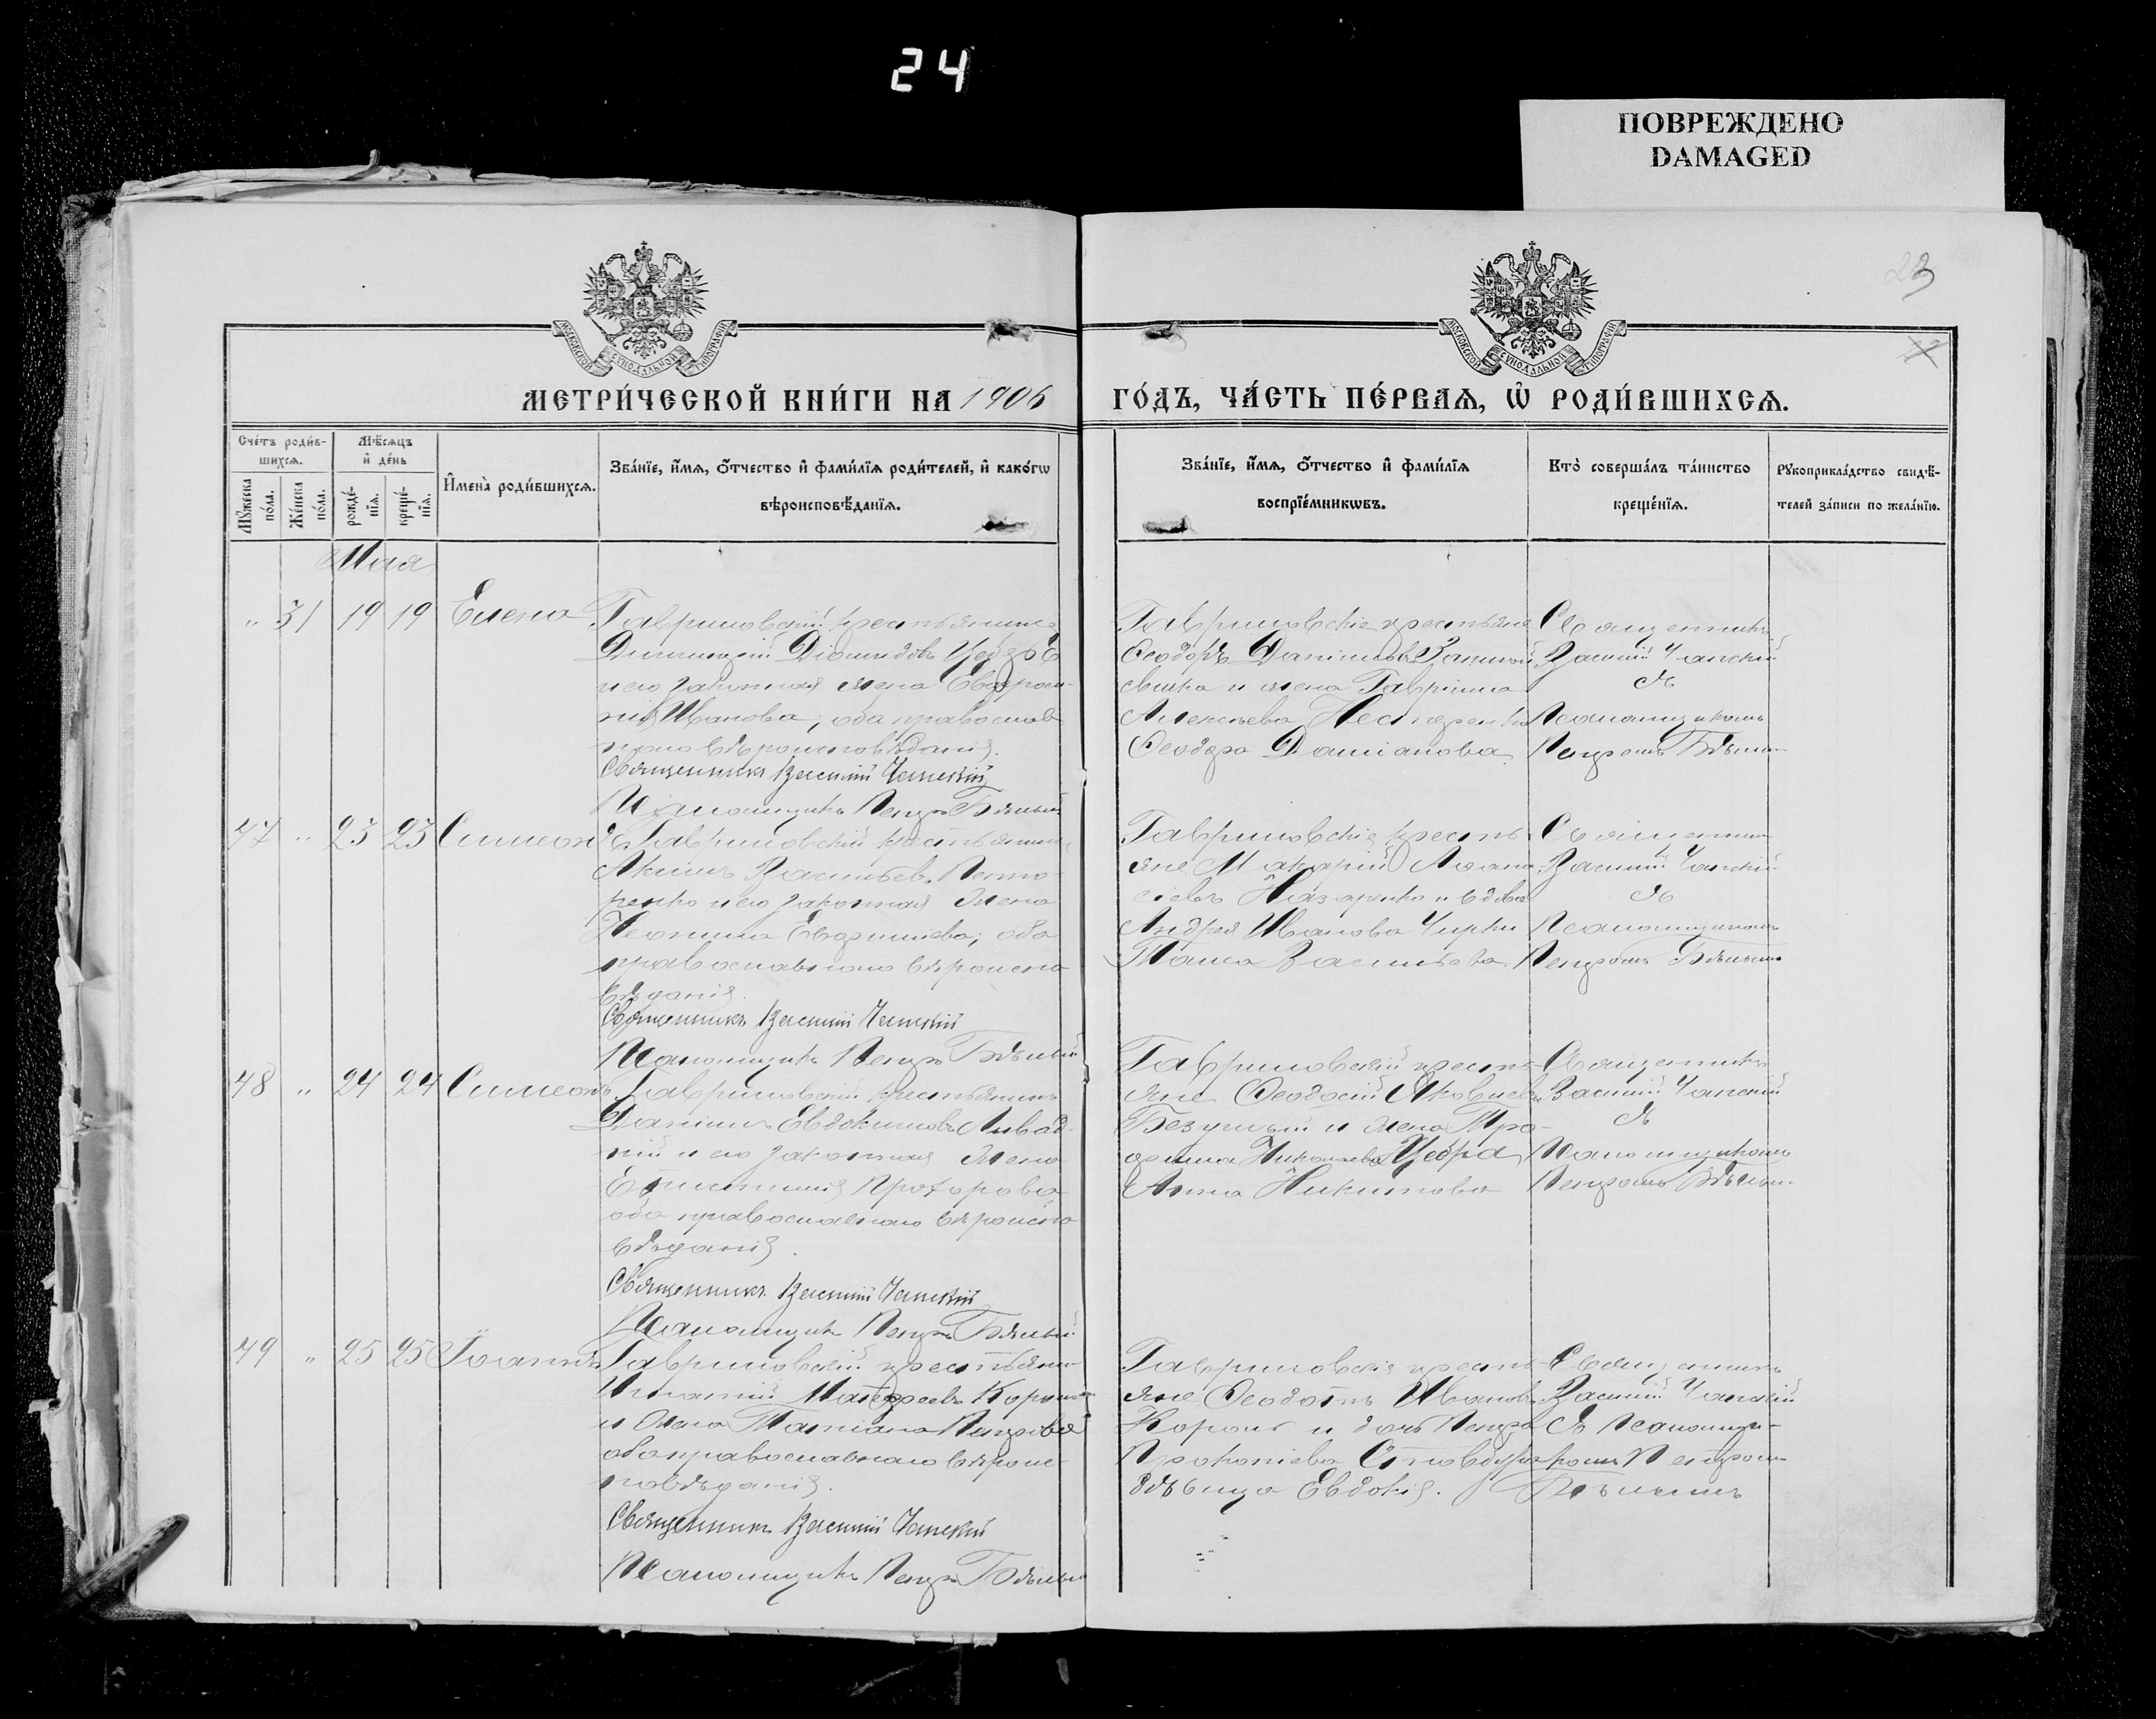 24
ПОВРЕЖДЕНО
DAMAGED
23
МОСКОВСКОЙ СѴНОДАЛЬНОЙ ТИПОГРАФІИ
МОСКОВСКОЙ СѴНОДАЛЬНОЙ ТИПОГРАФІИ
МЕТРИ́ЧЕСКОЙ КНИ́ГИ НА 1906
ГО́ДЪ, ЧА́СТЬ ПЕ́РВАѦ, Ѡ҆ РОДИ́ВШИХСѦ.
Сче́тъ роди́в-
шихсѧ.
Мѣ́сѧцъ
и҆ де́нь
Мꙋ́жеска
по́ла.
Же́нска
по́ла.
рожде́-
нїѧ.
креще́-
нїѧ.
И҆мена̀ роди́вшихсѧ.
Зва́нїе, и҆́мѧ, ѻ҆́тчество и҆ фами́лїѧ роди́телей, и҆ како́гѡ
вѣроисповѣ́данїѧ.
Зва́нїе, и҆́мѧ, ѻ҆́тчество и҆ фами́лїѧ
воспрїе́мникѡвъ.
Кто̀ соверша́лъ та́инство
креще́нїѧ.
Рꙋкоприкла́дство свидѣ́-
телей за́писи по жела́нїю.
Мая
" 31 19 19 Елена
Гавриловскій крестьянинъ
Димитрій Діомидовъ
и его законная жена Евфроси-
нія Иванова; оба православ
наго вѣроисповѣданія.
Священникъ Василій Чапскій
Псаломщикъ Петръ Бѣлый
Гавриловскіе крестьяне
Ѳеодоръ Даніиловъ
и жена Гавріила
Алексѣева Нестеренка
Ѳеодора Даміанова.
Священникъ
Василій Чапскій
съ
Псаломщикомъ
Петромъ Бѣлымъ
47 " 23 23 Симеонъ
Гавриловскій крестьянинъ
Акимъ Васильевъ
ренко и его законная жена
Неонила Евфиміева; оба
православнаго вѣроиспо
вѣданія.
Священникъ Василій Чапскій
Псаломщикъ Петръ Бѣлый
Гавриловскіе кресть
яне Макарій Аѳана-
сіевъ Назаренко и вдова
Андрея Иванова Чирки
Таиса Васильева.
Священникъ
Василій Чапскій
съ
Псаломщикомъ
Петромъ Бѣлымъ
48 " 24 24 Симеонъ.
Гавриловскій крестьянинъ
Даніилъ Евдокимовъ Ливад-
ній и его законная жена
Епистимія Прохорова
оба православнаго вѣроиспо
вѣданія.
Священникъ Василій Чапскій
Псаломщикъ Петръ Бѣлый
Гавриловскій кресть
яне Ѳеодосій Яковлевъ
Безуглый и жена Тро-
фима Николаева Цебра
Анна Никитова
Священникъ
Василій Чапскій
съ
Псаломщикомъ
Петромъ Бѣлымъ
49 " 25 25 Іоаннъ
Гавриловскій крестьянинъ
Игнатій Матѳеевъ Король
и жена Татіана Петрова
оба православнаго вѣроис-
повѣданія.
Священникъ Василій Чапскій
Псаломщикъ Петръ Бѣлый
Гавриловскіе кресть-
яне Ѳеодотъ Ивановъ
Король и дочь Петра
Прокопіева
дѣвица Евдокія.
Священникъ
Василій Чапскій
съ Псаломщи-
комъ Петромъ
Бѣлымъ